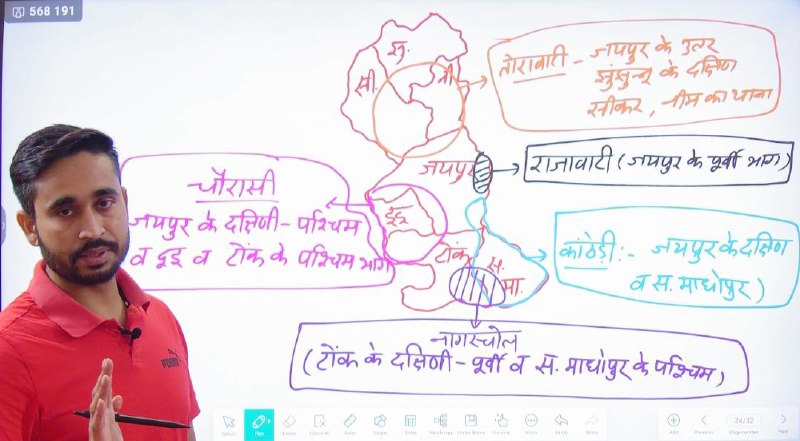 568 191
झु.
सी.
नी
तोरावाटी - जयपुर के उत्तर
झुंझुनू के दक्षिण
सीकर, नीम का थाना
जयपुर
राजावाटी (जयपुर के पूर्वी भाग)
चौरासी
जयपुर के दक्षिणी - पश्चिम
व दुदू व टोंक के पश्चिम भाग
दुदू
टोंक
स.
मा.
काठेडी :- जयपुर के दक्षिण
व स. माधोपुर )
नागरचोल
(टोंक के दक्षिणी - पूर्वी व स. माधोपुर के पश्चिम)
PUMA
Pen
24/32